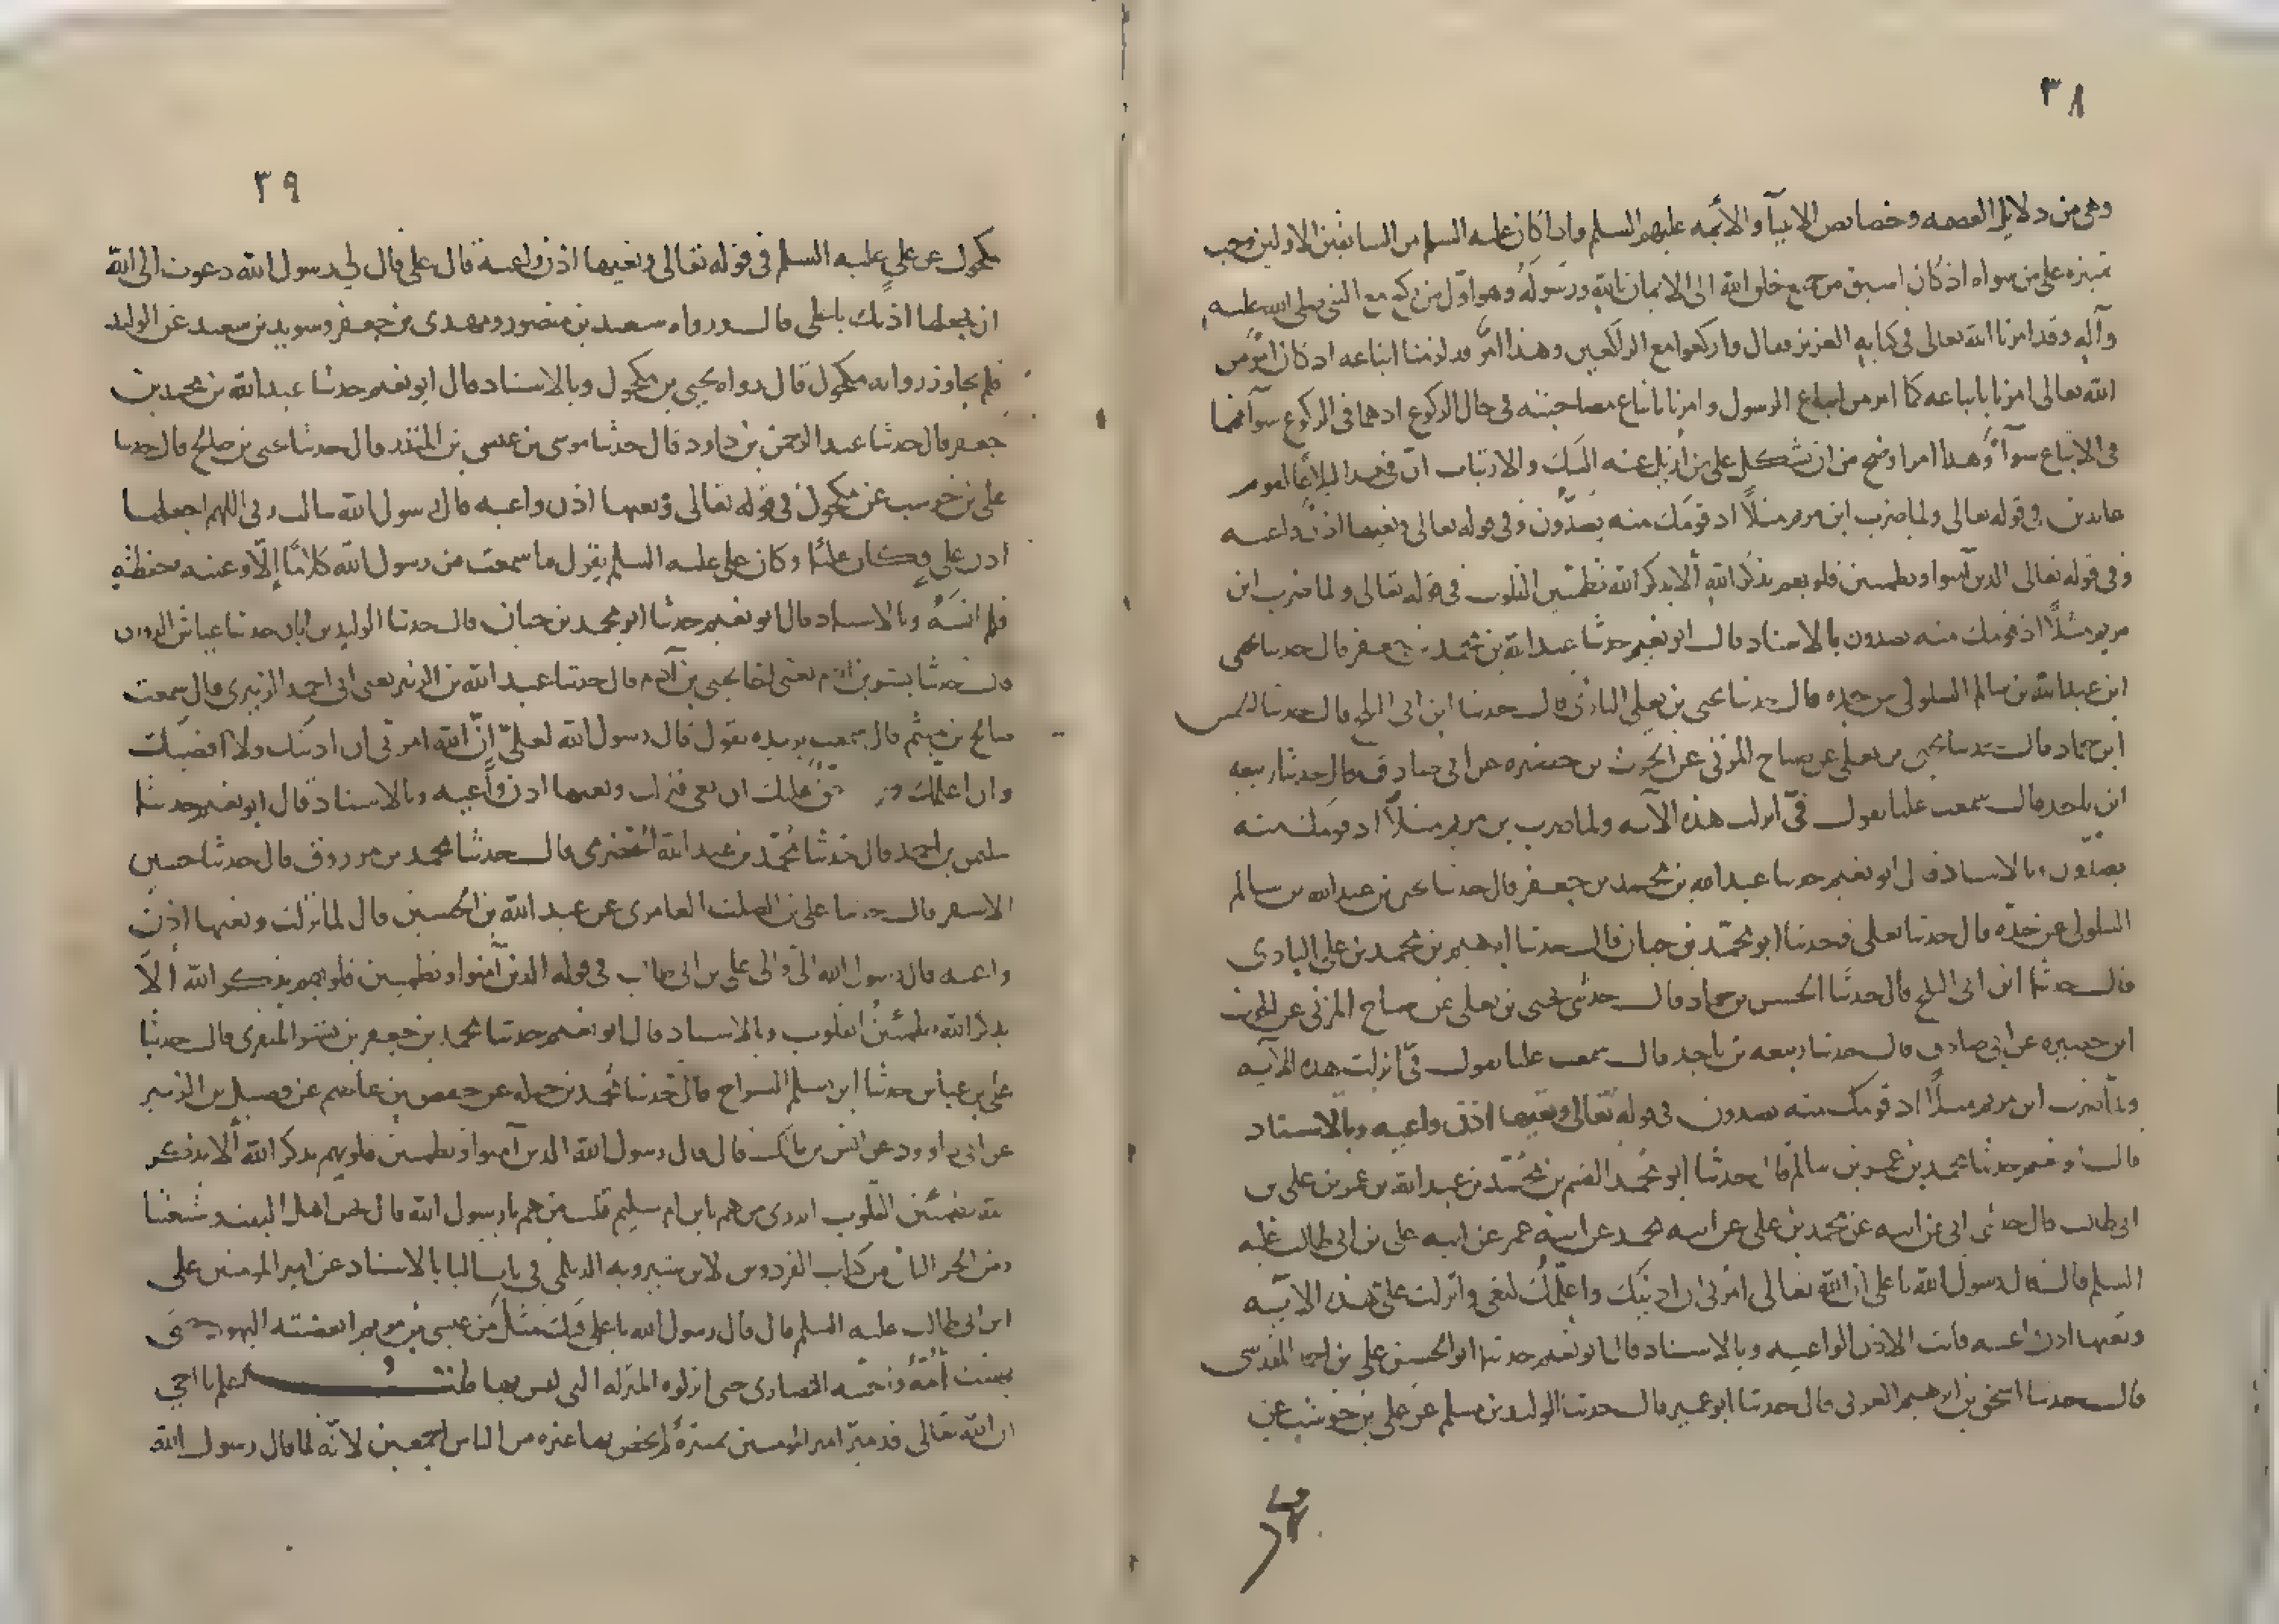 ٣٨
وهى من دلايل العصمه وخصايص الانبيآ والأئمه عليهم السلم واذا كان عليه السلم من السابقين الاولين وجب
تميزه على من سواه اذ كان اسبق من جميع خلق الله الى الايمان بالله ورسوله وهو اول من ركع مع النبى صلى الله عليه
وآله وقد امرنا الله تعالى فى كتابه العزيز فقال واركعوا مع الراكعين وهذا امر قد لزمنا اتباعه اذ كان امر من
الله تعالى امرنا باتباعه كما امر من اتباع الرسول وامرنا باتباع مصاحبته فى حال الركوع اذ هما فى الركوع سوآ فهما
فى الاتباع سوآ وهذا امر اوضح من ان تشكل على من ازيل عنه الشك والارتياب ان فى هذا لبلاغا لقوم
عابدين فى قوله تعالى ولما ضرب ابن مريم مثلاً اذ قومك منه يصدّون وفى قوله تعالى وتعيها اذن واعيه
وفى قوله تعالى الذين آمنوا وتطمئن قلوبهم بذكر الله ألا بذكر الله تطمئن القلوب فى قوله تعالى ولما ضرب ابن
مريم مثلاً اذ قومك منه يصدون بالاسناد قال ابو نعيم حدثنا عبد الله بن محمد بن جعفر قال حدثنا يحيى
ابن عبد الله بن سالم السلولى من جده قال حدثنا يحيى بن يعلى قال حدثنا ابن ابى الملح قال حدثنا الحسن
ابن حماد قال حدثنا يحيى بن يعلى عن صباح المزنى عن الحرث بن حصيره عن ابى صادق قال حدثنا ربيعه
ابن ناجد قال سمعت عليا يقول فىّ انزلت هذه الآيه ولما ضرب بن مريم مثلاً اذ قومك منه
يصدّون وبالاسناد قال ابو نعيم حدثنا عبد الله بن محمد بن جعفر قال حدثنا يحيى بن عبد الله بن سالم
السلولى عن جدّه قال حدثنا يعلى وحدثنا ابو محمّد بن حبان قال حدثنا ابرهيم بن محمد بن على
قال حدثنا ابن ابى الملح قال حدثنا الحسن بن حماد قال حدثنى يحيى بن يعلى عن صباح المزنى عن الحرث
ابن حصيره عن ابى صادق قال حدثنا ربيعه بن ناجد قال سمعت عليا يقول فىّ انزلت هذه الآيه
ولما ضرب ابن مريم مثلاً اذ قومك منه يصدون فى قوله تعالى وتعيها اذن واعيه وبالاسناد
قال ابو نعيم حدثنا محمد بن عمر بن سالم قال حدثنا ابو محمد القسم بن محمّد بن عبد الله بن عمر بن على بن
ابى طالب قال حدثنى ابى عن ابيه عن محمد بن على عن ابيه محمد عن ابيه عمر عن ابيه على بن ابى طالب عليه
السلم قال قال رسول الله يا على ان الله تعالى امرنى ان ادنيك واعلّمك لتعى وانزلت علىّ هذه الآيه
وتعيها اذن واعيه فانت الاذن الواعيه وبالاسناد قال ابو نعيم حدثنا ابو الحسن على بن احمد المقدسى
قال حدثنا اسحق بن ابرهيم قال حدثنا ابو عمير قال حدثنا الوليد بن مسلم عن على بن حوشب عن
٣٩
مكحول عن على عليه السلم فى قوله تعالى وتعيها اذن واعية قال على قال لى رسول الله دعوت الى الله
ان يجعلها اذنك يا على قال ورواه سعيد بن منصور ومهدى بن جعفر وسويد بن سعيد عن الوليد
فلم يجاوز روايه مكحول قال رواه يحيى بن مكحول وبالاسناد قال ابو نعيم حدثنا عبد الله بن محمد بن
جعفر قال حدثنا عبد الرحمن بن داود قال حدثنا موسى بن عيسى بن المنذر قال حدثنا يحيى بن صالح قال حدثنا
على بن حوشب عن مكحول فى قوله تعالى وتعيها اذن واعيه قال رسول الله سالت ربى اللهم اجعلها
اذن على فكان عليا وكان على عليه السلم يقول ما سمعت من رسول الله كلامًا إلّا وعيته حفظته
فلم انسَهُ وبالاسناد قال ابو نعيم حدثنا ابو محمد بن حبان قال حدثنا الوليد بن ابان حدثنا عباس الدورى
قال حدثنا بشر بن آدم يعنى اخا يحيى بن آدم قال حدثنا عبد الله بن الزبير يعنى ابى احمد الزبيرى قال سمعت
صالح بن ميثم قال سمعت بريده يقول قال رسول الله لعلىّ إنّ الله امرنى ان ادنيك ولا اقصيك
وان اعلمك عليك ان تعى فنزلت وتعيها اذن واعيه وبالاسناد قال ابو نعيم حدثنا
سليمن بن احمد قال حدثنا محمّد بن عبد الله الحضرمى قال حدثنا محمد بن مرزوق قال حدثنا حسين
الاشقر قال حدثنا على بن الصلت العامرى عن عبد الله بن الحسين قال لما نزلت وتعيها اذن
واعيه قال رسول الله علىّ بن ابى طالب فى قوله الذين آمنوا وتطمئن قلوبهم بذكر الله ألا
بذكر الله تطمئن القلوب وبالاسناد قال ابو نعيم حدثنا محمد بن جعفر بن بشر المقرى قال حدثنا
على بن عباس حدثنا ابن سلم السواح قال حدثنا محمد بن حمله عن حفص بن عاصم عن فضيل بن الزبير
عن ابى داوود عن انس بن مالك قال قال رسول الله الذين آمنوا وتطمئن قلوبهم بذكر الله ألا بذكر
الله تطمئن القلوب اتدرى من هم يا بن ام سليم قلت من هم يا رسول الله قال نحن اهل البيت وشيعتنا
ومن الجزء الثانى من كتاب الفردوس لابن شيرويه الديلمى فى باب اليا بالاسناد عن امير المومنين على
ابن ابى طالب عليه السلم قال قال رسول الله يا على فيك مثل من عيسى بن مريم ابغضته اليهود حتى
بهتت أمّهُ واحبّته النصارى حتى انزلوه المنزله التى ليس بها اعلم يا اخى
ان الله تعالى قد ميّز امير المومنين بميزةٍ لم يخص بها غيره من الناس اجمعين لانّه لما قال رسول الله